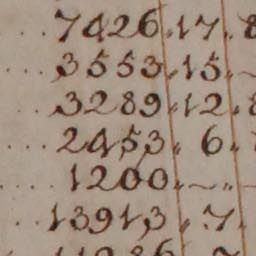 ....7426.17.8
....3553.15.~
....3289.12.8
....2453. 6.
....1200.~.~
....13913.7.